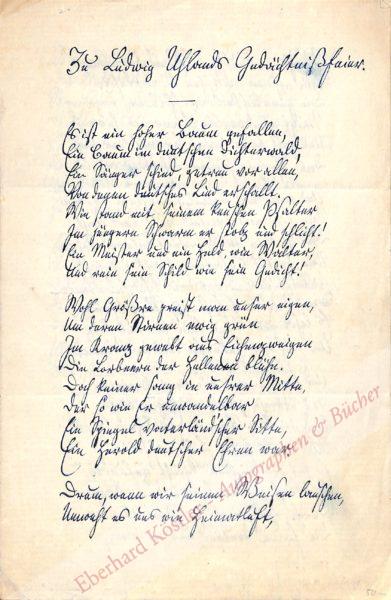 Zu Ludwig Uhlands Gedächtnißfeier.
Es ist ein hoher Baum gefallen,
Ein Baum im deutschen Dichterwald,
Ein Sänger schied, getreu vor allen,
Von denen deutsches Lied erschallt.
Wie stand mit seinem keuschen Psalter
Im jüngern Schwarm er stolz und schlicht!
Ein Meister und ein Held, wie Walter,
Und rein sein Schild wie sein Gedicht!
Wohl Größre preist man unser eigen,
Um deren Stirnen ewig grün
Im Kranz gewebt aus Eichenzweigen
Die Lorbeern der Hellenen blühn.
Doch keiner sang in unsrer Mitte,
Der so wie Er unwandelbar
Ein Spiegel vaterländscher Sitte,
Ein Herold deutscher Ehren war.
Drum, wenn wir seinen Weisen lauschen,
Umweht es uns wie Heimatluft,
Eberhard Köstler Autographen & Bücher